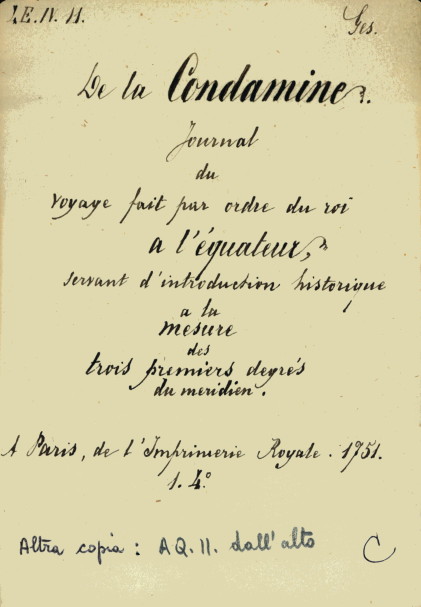 I.E.IV.11.
Ges.
De la Condamine.
Journal
du
voyage fait par ordre du roi
a l'équateur,
servant d'introduction historique
a la
mesure
des
trois premiers degrés
du meridien.
A Paris, de l'Imprimerie Royale. 1751.
1. 4°
Altra copia: AQ.11. dall'alto
C